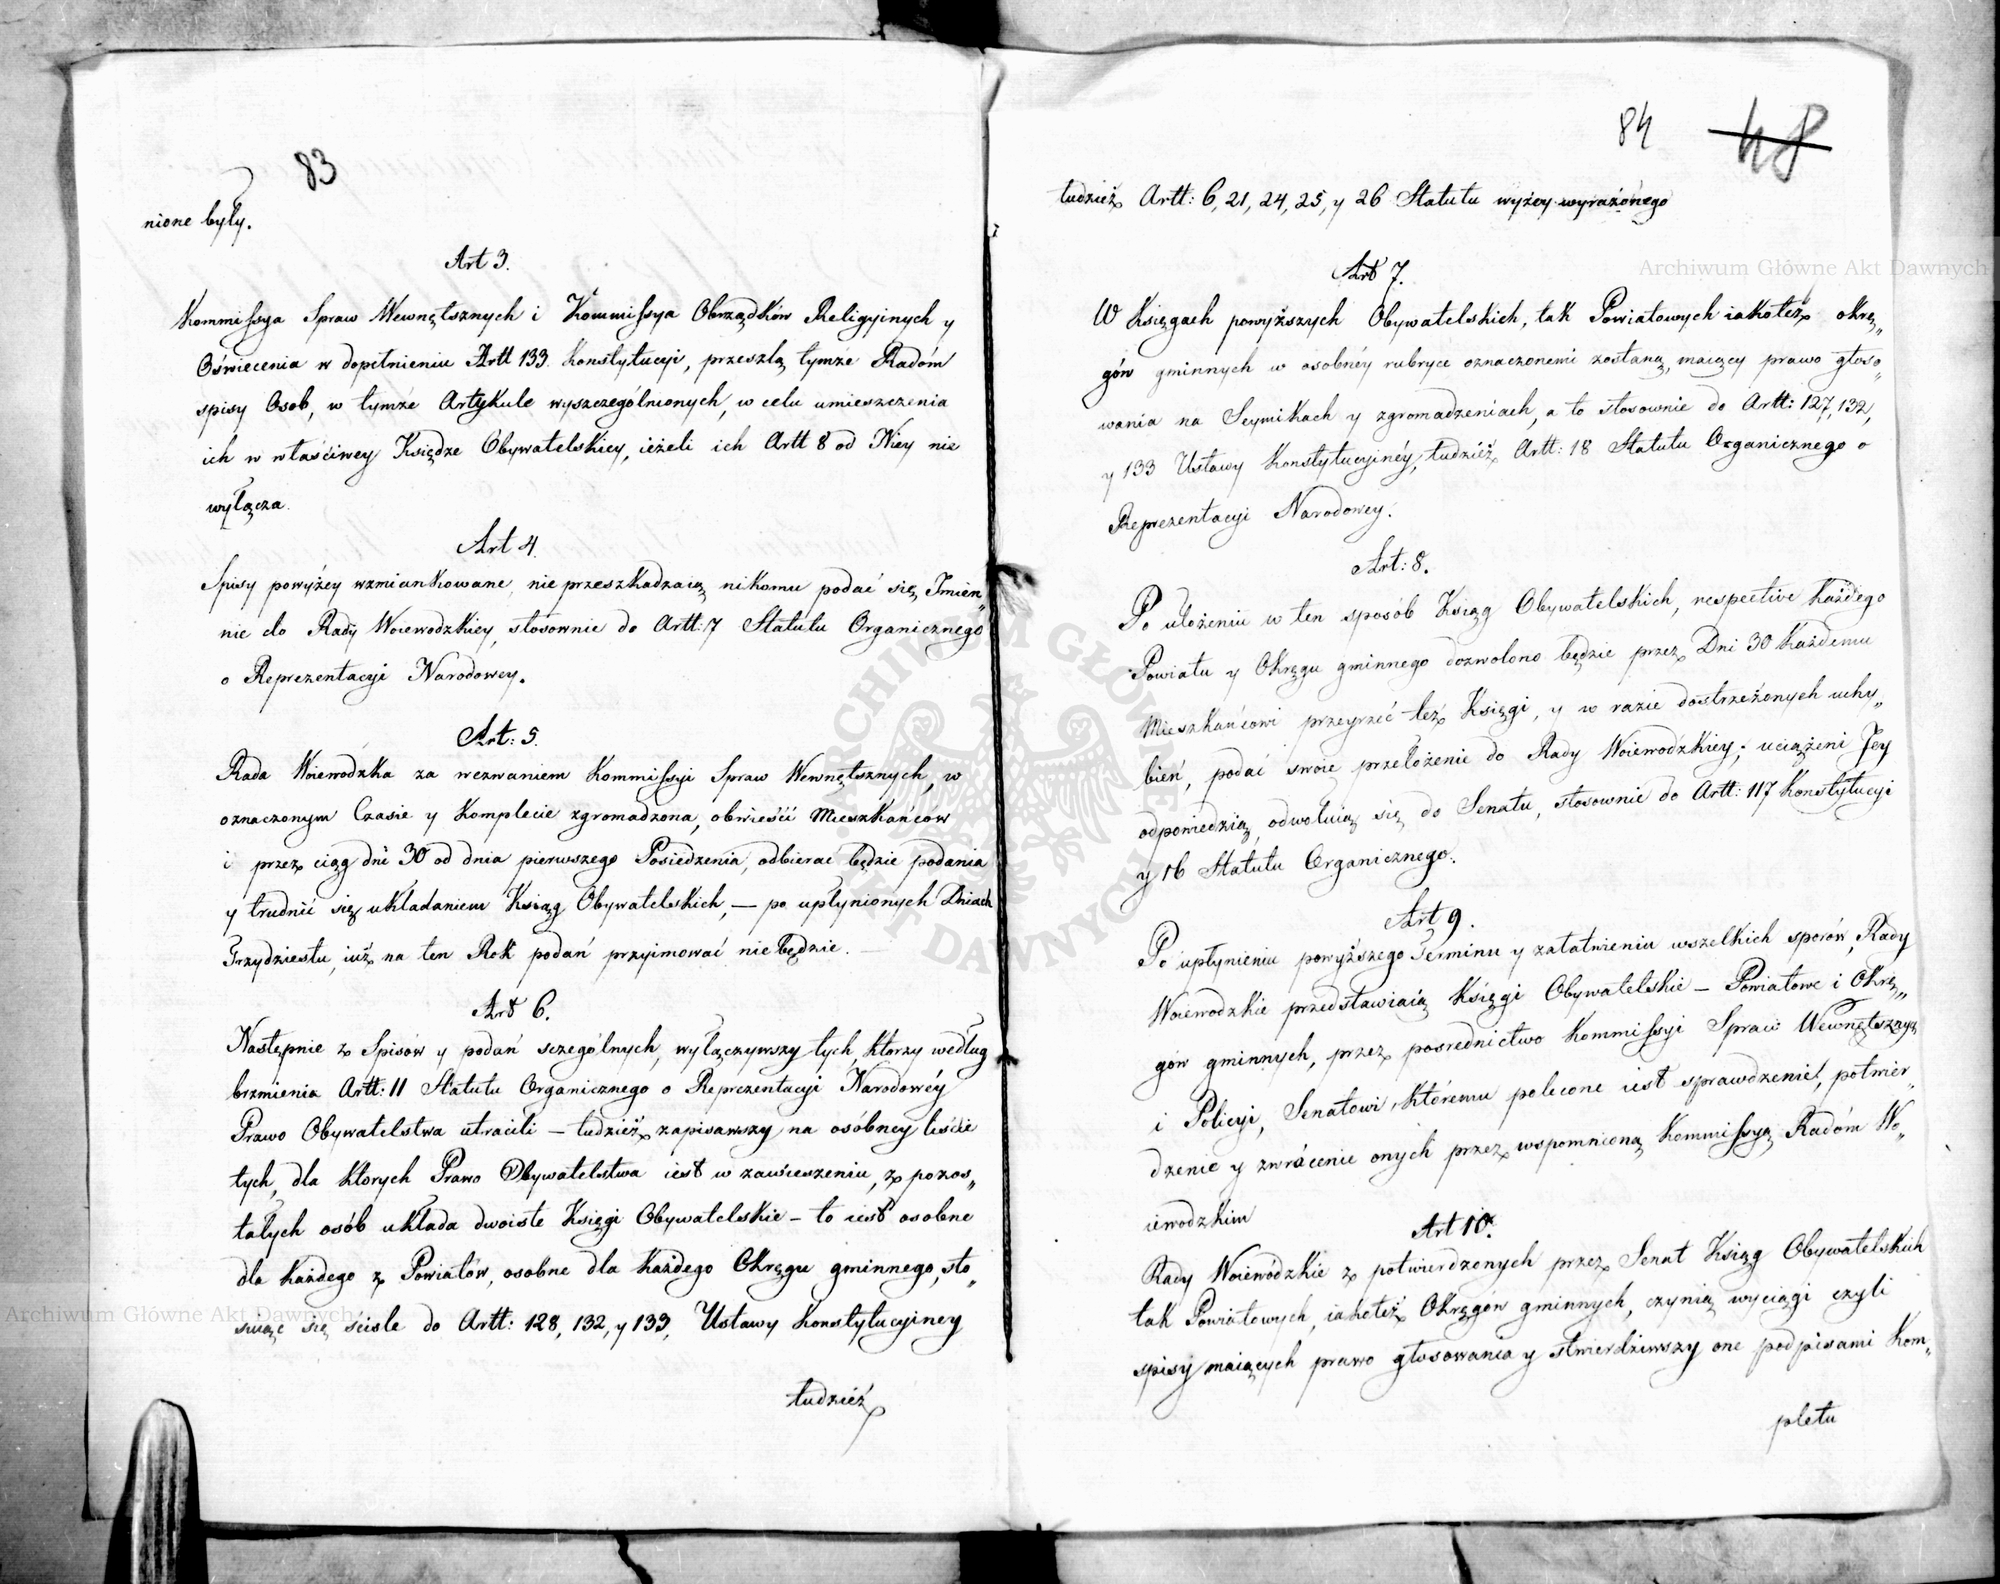 83
nione były.
Art 3.
Kommissya Spraw Wewnętsznych i Kommissya Obrządków Religyinych y
Oświecenia w dopełnieniu Artt 133. Konstytucyi, przeszlą tymże Radóm
spisy Osob, w tymże Artykule wyszczególnionych, w celu umieszczenia
ich w właściwey Księdze Obywatelskiey, ieżeli ich Artt 8 od Niey nie
wyłącza.
Art 4.
Spisy powyżey wzmiankowane, nie przeszkadzaią nikomu podać się Jmien„
nie do Rady Woiewodzkiey, stosownie do Artt: 7 Statutu Organicznego
o Reprezentacyi Narodowey.
Art: 5.
Rada Woiewodzka za wezwaniem Kommissyi Spraw Wewnętsznych, w
oznaczonym Czasie y Komplecie zgromadzona, obwieści Mieszkańców
i przez ciąg dni 30 od dnia pierwszego Posiedzenia, odbierać będzie podania
y trudnić się układaniem Ksiąg Obywatelskich, — po upłynionych Dniach
Trzydziestu, iuż na ten Rok podań przyimować nie będzie. —
Art 6.
Następnie z Spisów y podań sczególnych, wyłączywszy tych, którzy według
brzmienia Artt: 11 Statutu Organicznego o Reprezentacyi Narodowéy
Prawo Obywatelstwa utracili – tudzież zapisawszy na osóbney liście
tych, dla ktorych Prawo Obywatelstwa iest w zawieszeniu, z pozos„
tałych osób układa dwoiste Księgi Obywatelskie – to iest osobne
dla każdego z Powiatów, osobne dla każdego Okręgu gminnego, sto„
suiąc się ściśle do Artt: 128, 132, y 133, Ustawy Konstytucyiney
tudzież
84 48
tudzież Artt: 6, 21, 24, 25, y 26 Statutu wyżey wyrażonego
Art 7.
W Księgach powyższych Obywatelskich, tak Powiatowych iakoteż okrę„
gów gminnych w osobnéy rubryce oznaczonemi zostaną, maiący prawo głoso„
wania na Seymikach y zgromadzeniach, a to stosownie do Artt: 127, 132,
y 133 Ustawy Konstytucyinéy, tudzież Artt: 18 Statutu Organicznego o
Reprezentacyi Narodowey.
Art: 8.
Po ułożeniu w ten sposób Ksiąg Obywatelskich, respective każdego
Powiatu y Okręgu gminnego dozwolono będzie przez Dni 30 każdemu
Mieszkańcowi przeyrzeć też Księgi, y w razie dostrzeżonych uchy„
bień, podać swoie przełożenie do Rady Woiewodzkiey; uciążeni Jey
odpowiedzią, odwołuią się do Senatu, stosownie do Artt: 117 Konstytucyi
y 16 Statutu Organicznego.
Art 9.
Po upłynieniu powyższego Terminu y załatwieniu wszelkich sporów, Rady
Woiewodzkie przedstawiaią Księgi Obywatelskie – Powiatowe i Okrę„
gów gminnych, przez posrednictwo Kommissyi Spraw Wewnętsznych
i Policyi, Senatowi, któremu polecone iest sprawdzenie, potwier„
dzenie y zwrócenie onych przez wspomnioną Kommissyą Radóm Wo„
iewodzkim
Art 10.
Rady Woiewódzkie z potwierdzonych przez Senat Ksiąg Obywatelskich
tak Powiatowych, iakoteż Okręgów gminnych, czynią wyciągi czyli
spisy maiących prawo głosowania y stwierdziwszy one podpisami Kom„
pletu
Archiwum Główne Akt Dawnych
Archiwum Główne Akt Dawnych
ARCHIWUM GŁÓWNE AKT DAWNYCH